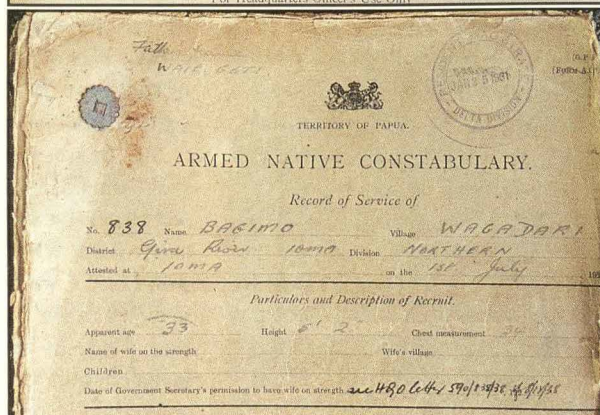 For Headquarters Officer's Use Only
Fath
WAIE
RESIDENT MAGISTRATE
1931
DELTA DIVISION
TERRITORY OF PAPUA.
ARMED NATIVE CONSTABULARY.
Record of Service of
No. 838 Name BAGIMO Village WAGADARI
District Gira River IOMA Division NORTHERN
Attested at IOMA on the 1st July 19
Particulars and Description of Recruit.
Apparent age 33 Height 5' 2" Chest measurement 34
Name of wife on the strength Wife's village
Children
Date of Government Secretary's permission to have wife on strength see HQO letter 590/838/38